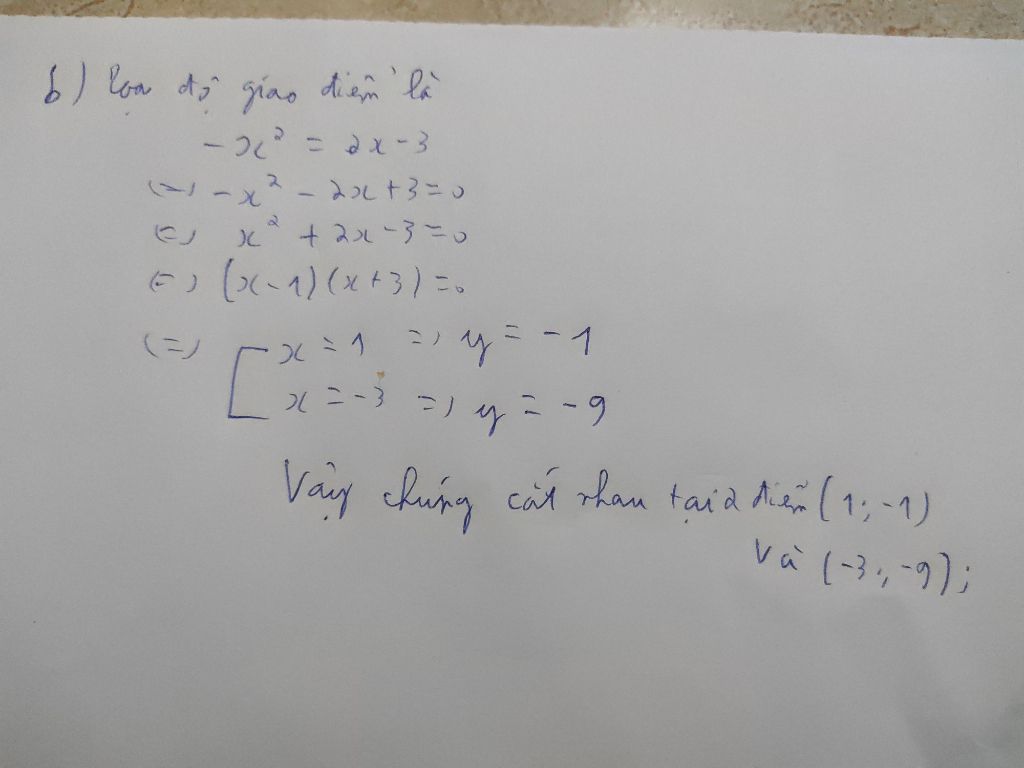 b) Tọa độ giao điểm là
-x² = 2x-3
(=) -x² - 2x+3=0
(=) x² + 2x-3=0
(=) (x-1)(x+3)=0
(=) [ x=1 => y = -1
x=-3 => y = -9
Vậy chúng cắt nhau tại 2 điểm (1;-1)
và (-3;-9);